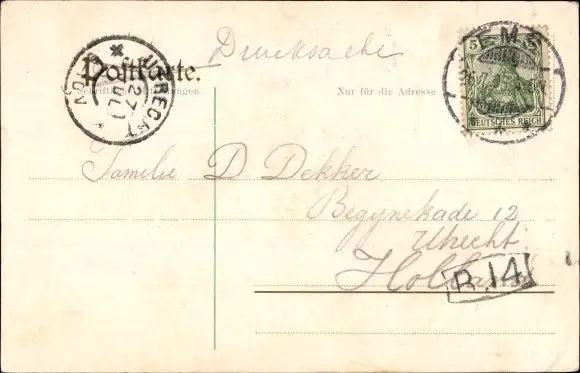 Postkarte.
Drucksache
Nur für die Adresse
EMS
5
DEUTSCHES REICH
UTRECHT
27
JUL
Familie D Dekker
Begijnekade 12
Utrecht.
Holland
B.14